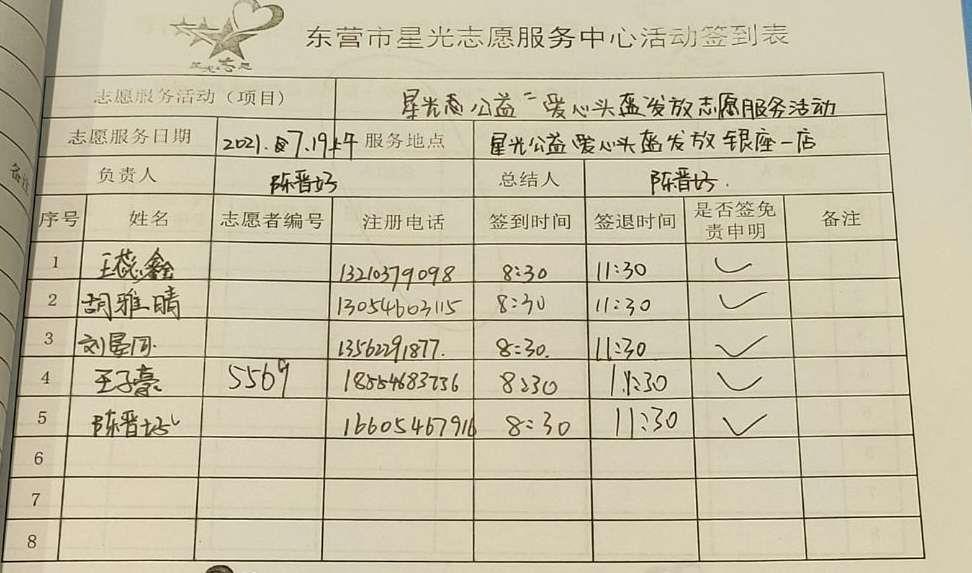 东营市星光志愿服务中心活动签到表
志愿服务活动（项目） 星光志公益 爱心头盔发放志愿服务活动
志愿服务日期 2021. 7.19上午 服务地点 星光公益爱心头盔发放 银座一店
负责人 陈晋好 总结人 陈晋好.
序号 姓名 志愿者编号 注册电话 签到时间 签退时间 是否签免责申明 备注
1 王蕊鑫 13210379098 8:30 11:30 ✓
2 胡雅晴 13054603115 8:30 11:30 ✓
3 刘晏同. 13562291877. 8:30. 11:30 ✓
4 王子豪 5569 18554683736 8:30 11:30 ✓
5 陈晋好 16605467916 8:30 11:30 ✓
6
7
8